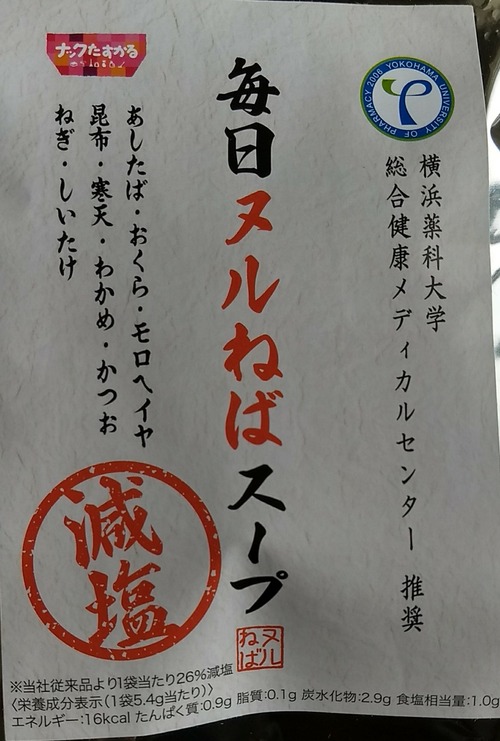 YOKOHAMA UNIVERSITY OF PHARMACY 2006
横浜薬科大学
総合健康メディカルセンター 推奨
毎日ヌルねばスープ
ヌル
ねば
ナックたすかる
あしたば・おくら・モロヘイヤ
昆布・寒天・わかめ・かつお
ねぎ・しいたけ
減塩
※当社従来品より1袋当たり26%減塩
〈栄養成分表示(1袋5.4g当たり)〉
エネルギー:16kcal たんぱく質:0.9g 脂質:0.1g 炭水化物:2.9g 食塩相当量:1.0g